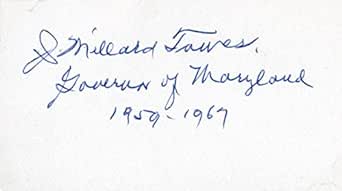 J. Millard Tawes.
Governor of Maryland
1959-1967